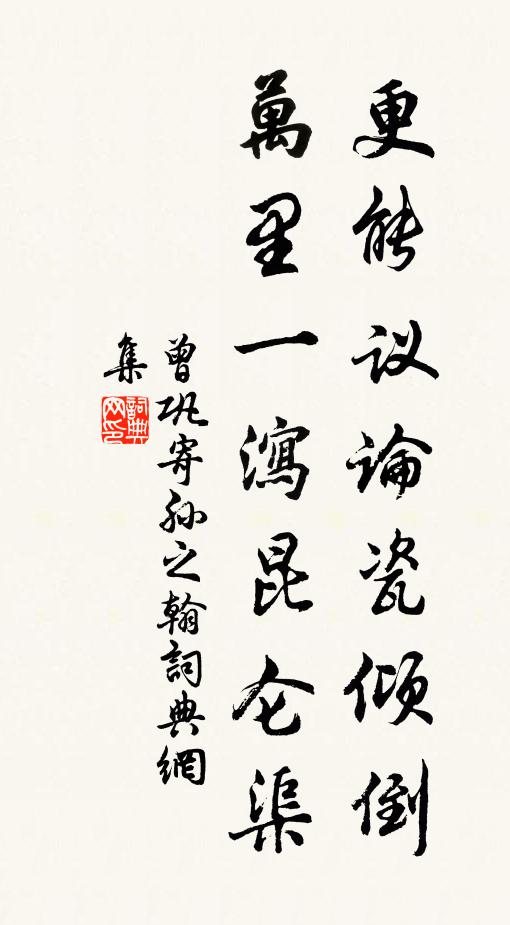 更能议论瓷倾倒
萬里一瀉昆仑渠
曾巩寄孙之翰詞典網
集
詞典网印